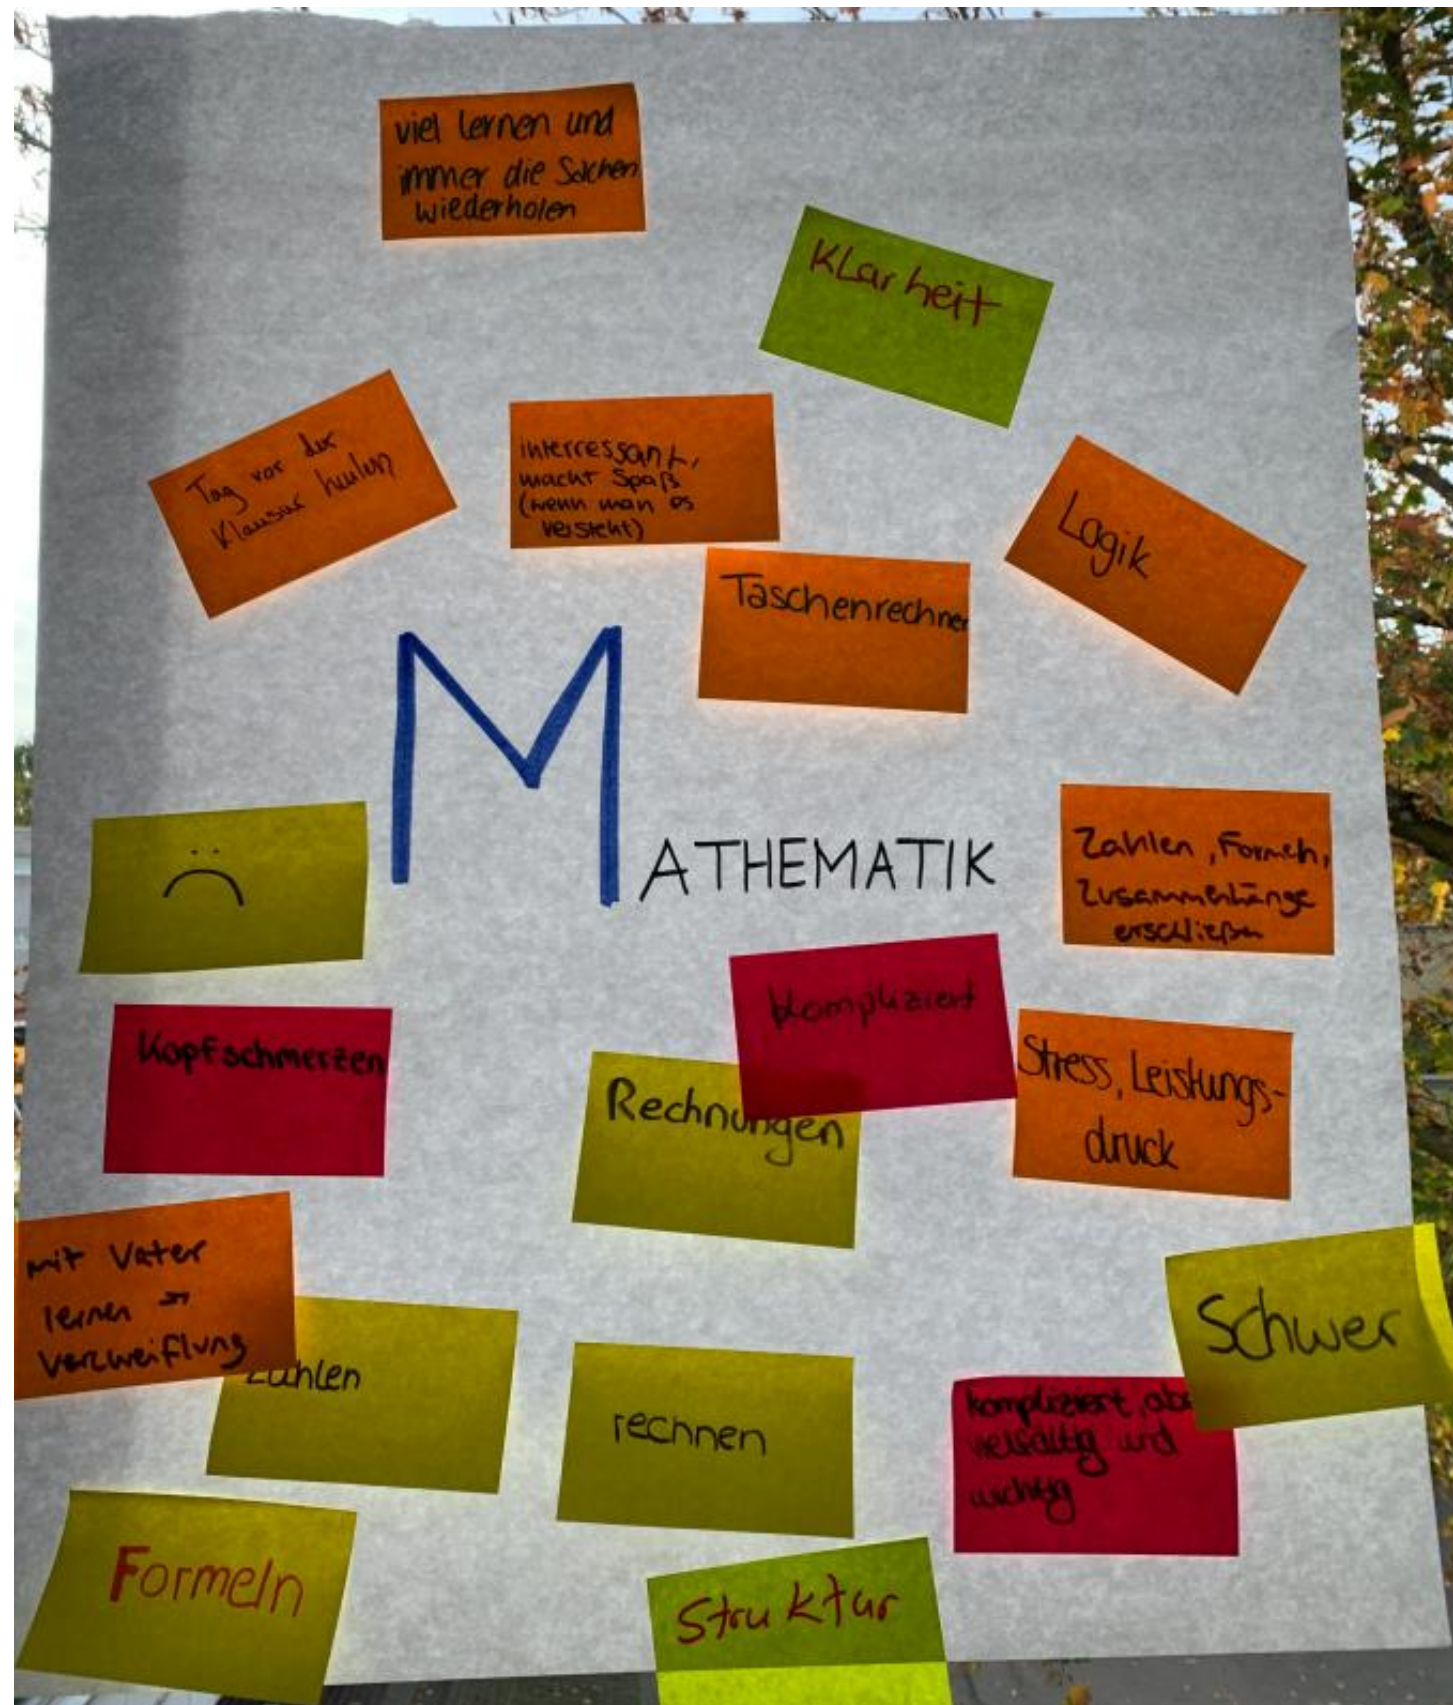 viel lernen und
immer die Sachen
wiederholen
Klarheit
Tag vor der
Klausur heulen
interressant,
macht Spaß
(wenn man es
versteht)
Logik
Taschenrechner
MATHEMATIK
Zahlen, Formeln,
Zusammenhänge
erschließen
Kopfschmerzen
kompliziert
Rechnungen
Stress, Leistungs-
druck
mit Vater
lernen →
Verzweiflung
Zahlen
rechnen
Schwer
kompliziert, aber
vielfältig und
wichtig
Formeln
Struktur